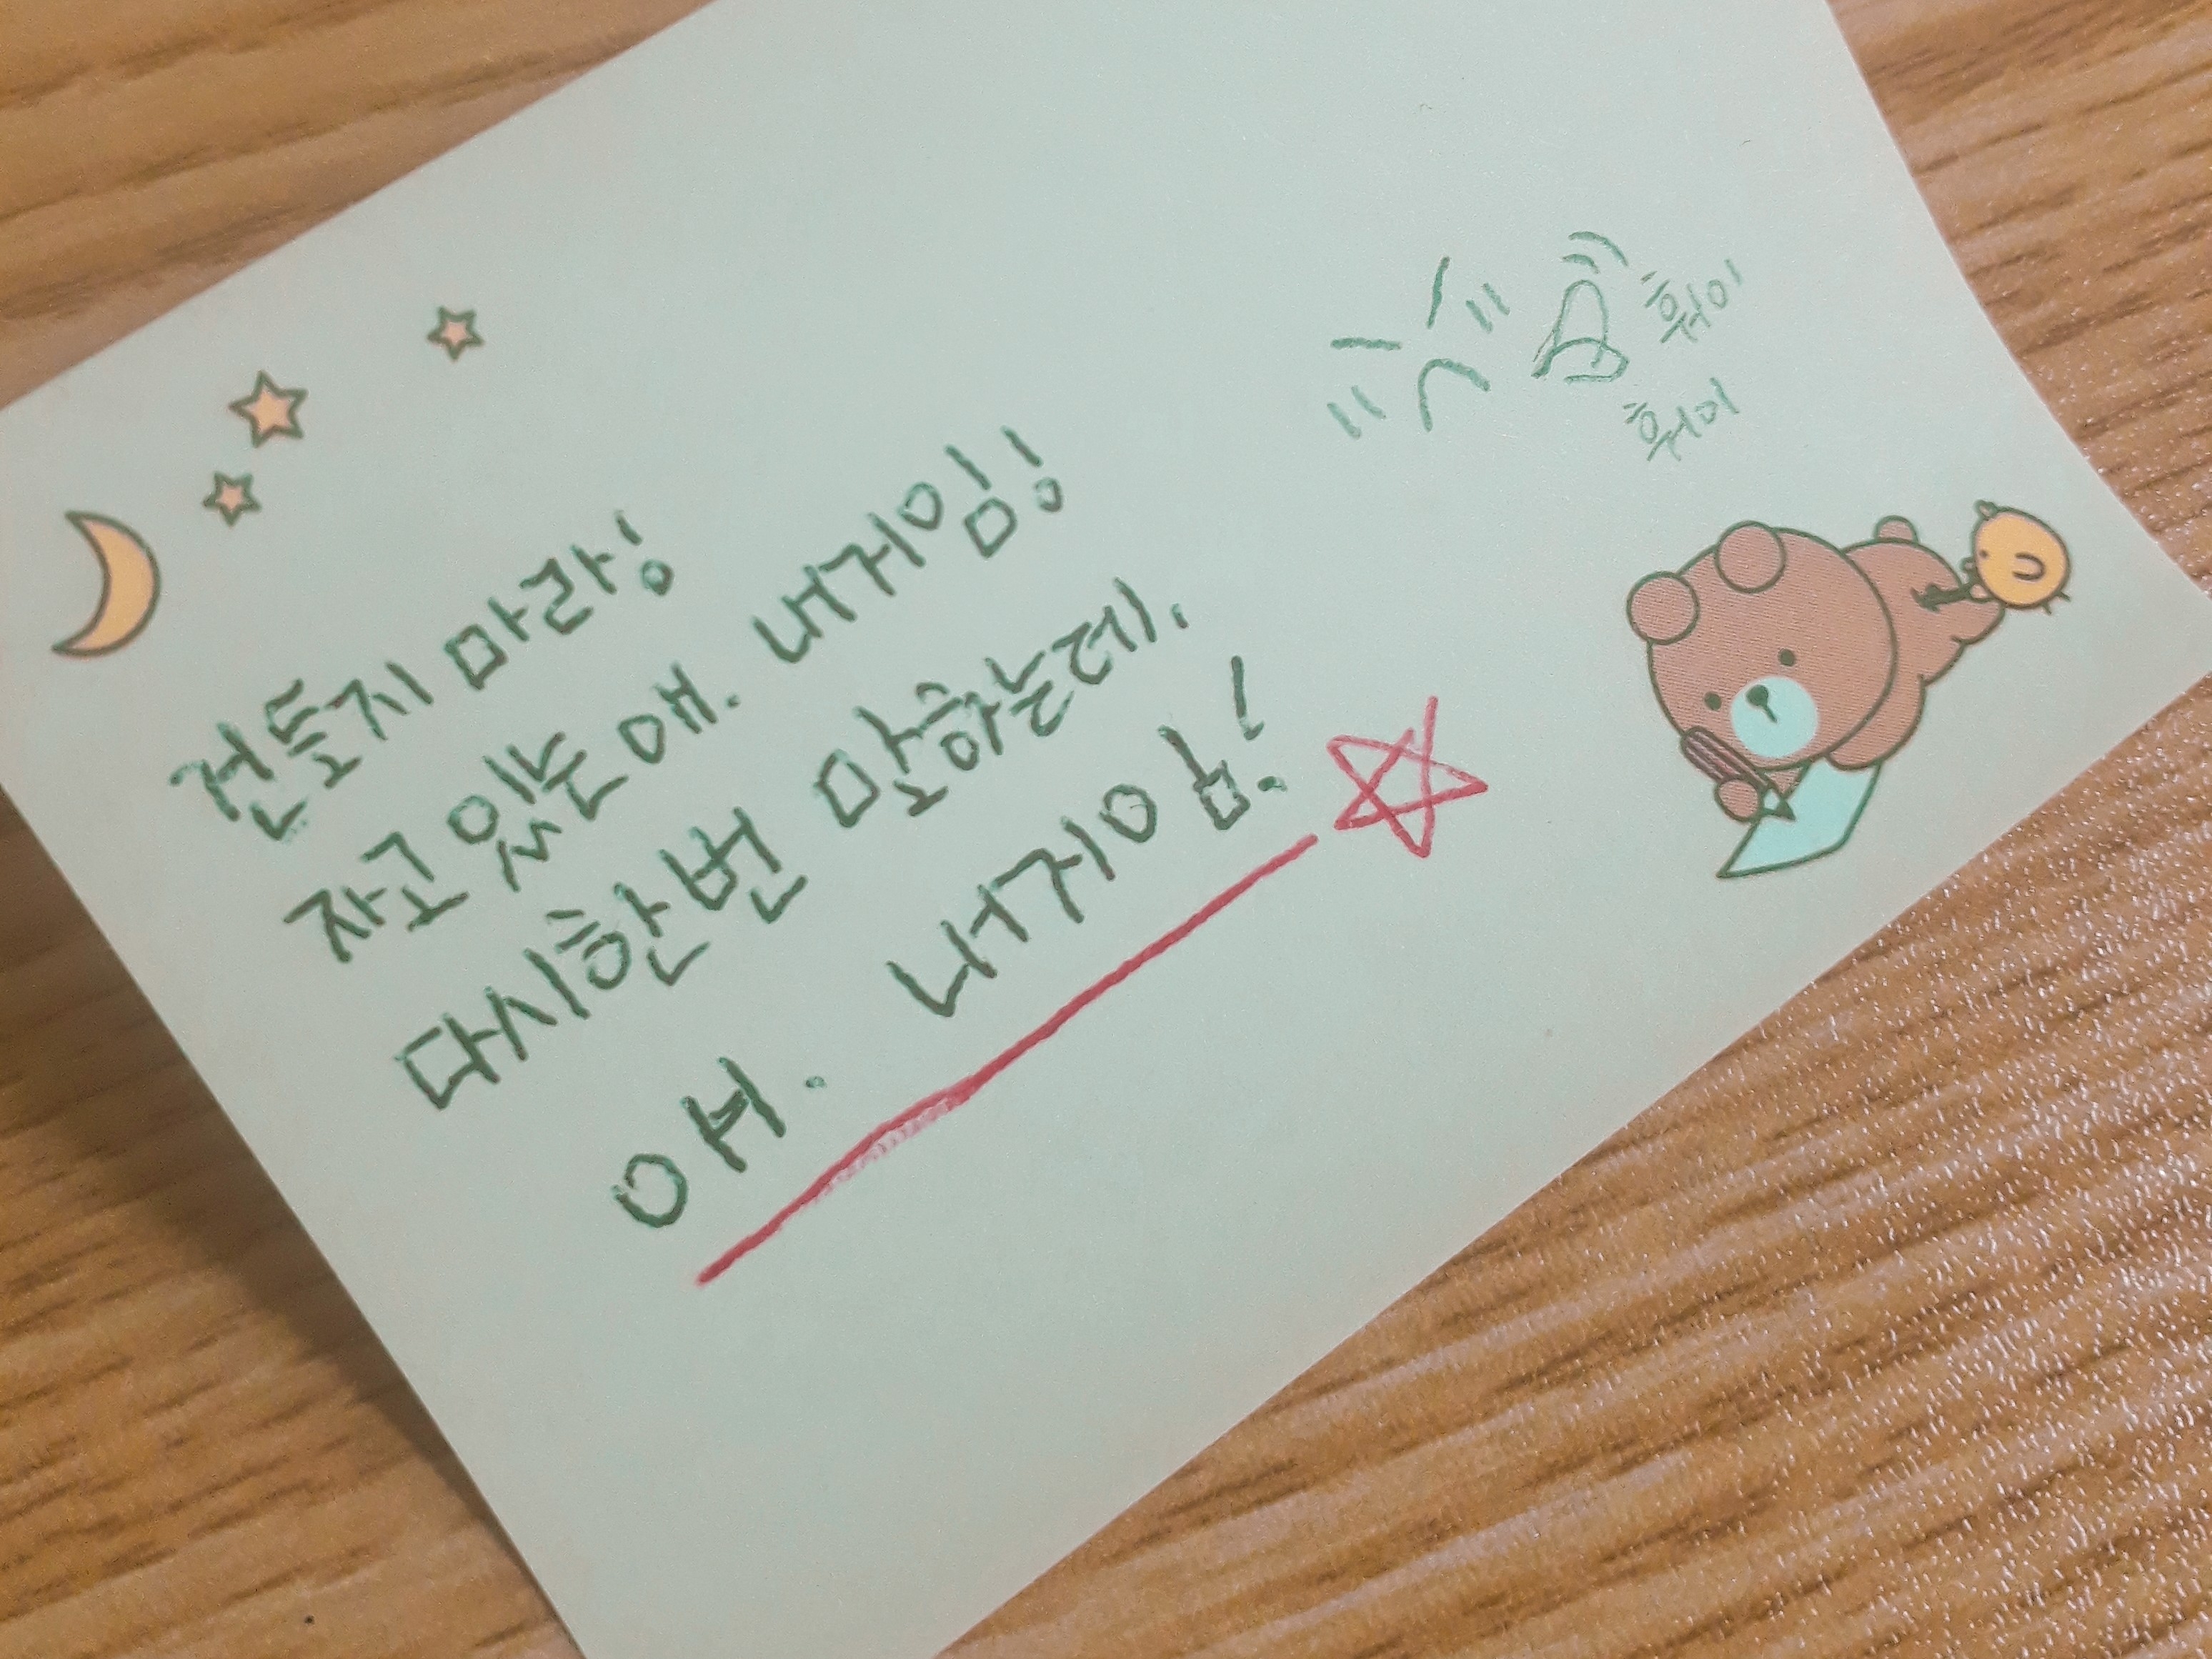 훠이
훠이
건들지 마라!
자고 있는 애. 내거임!
다시한번 말하는데,
얘. 내거임!